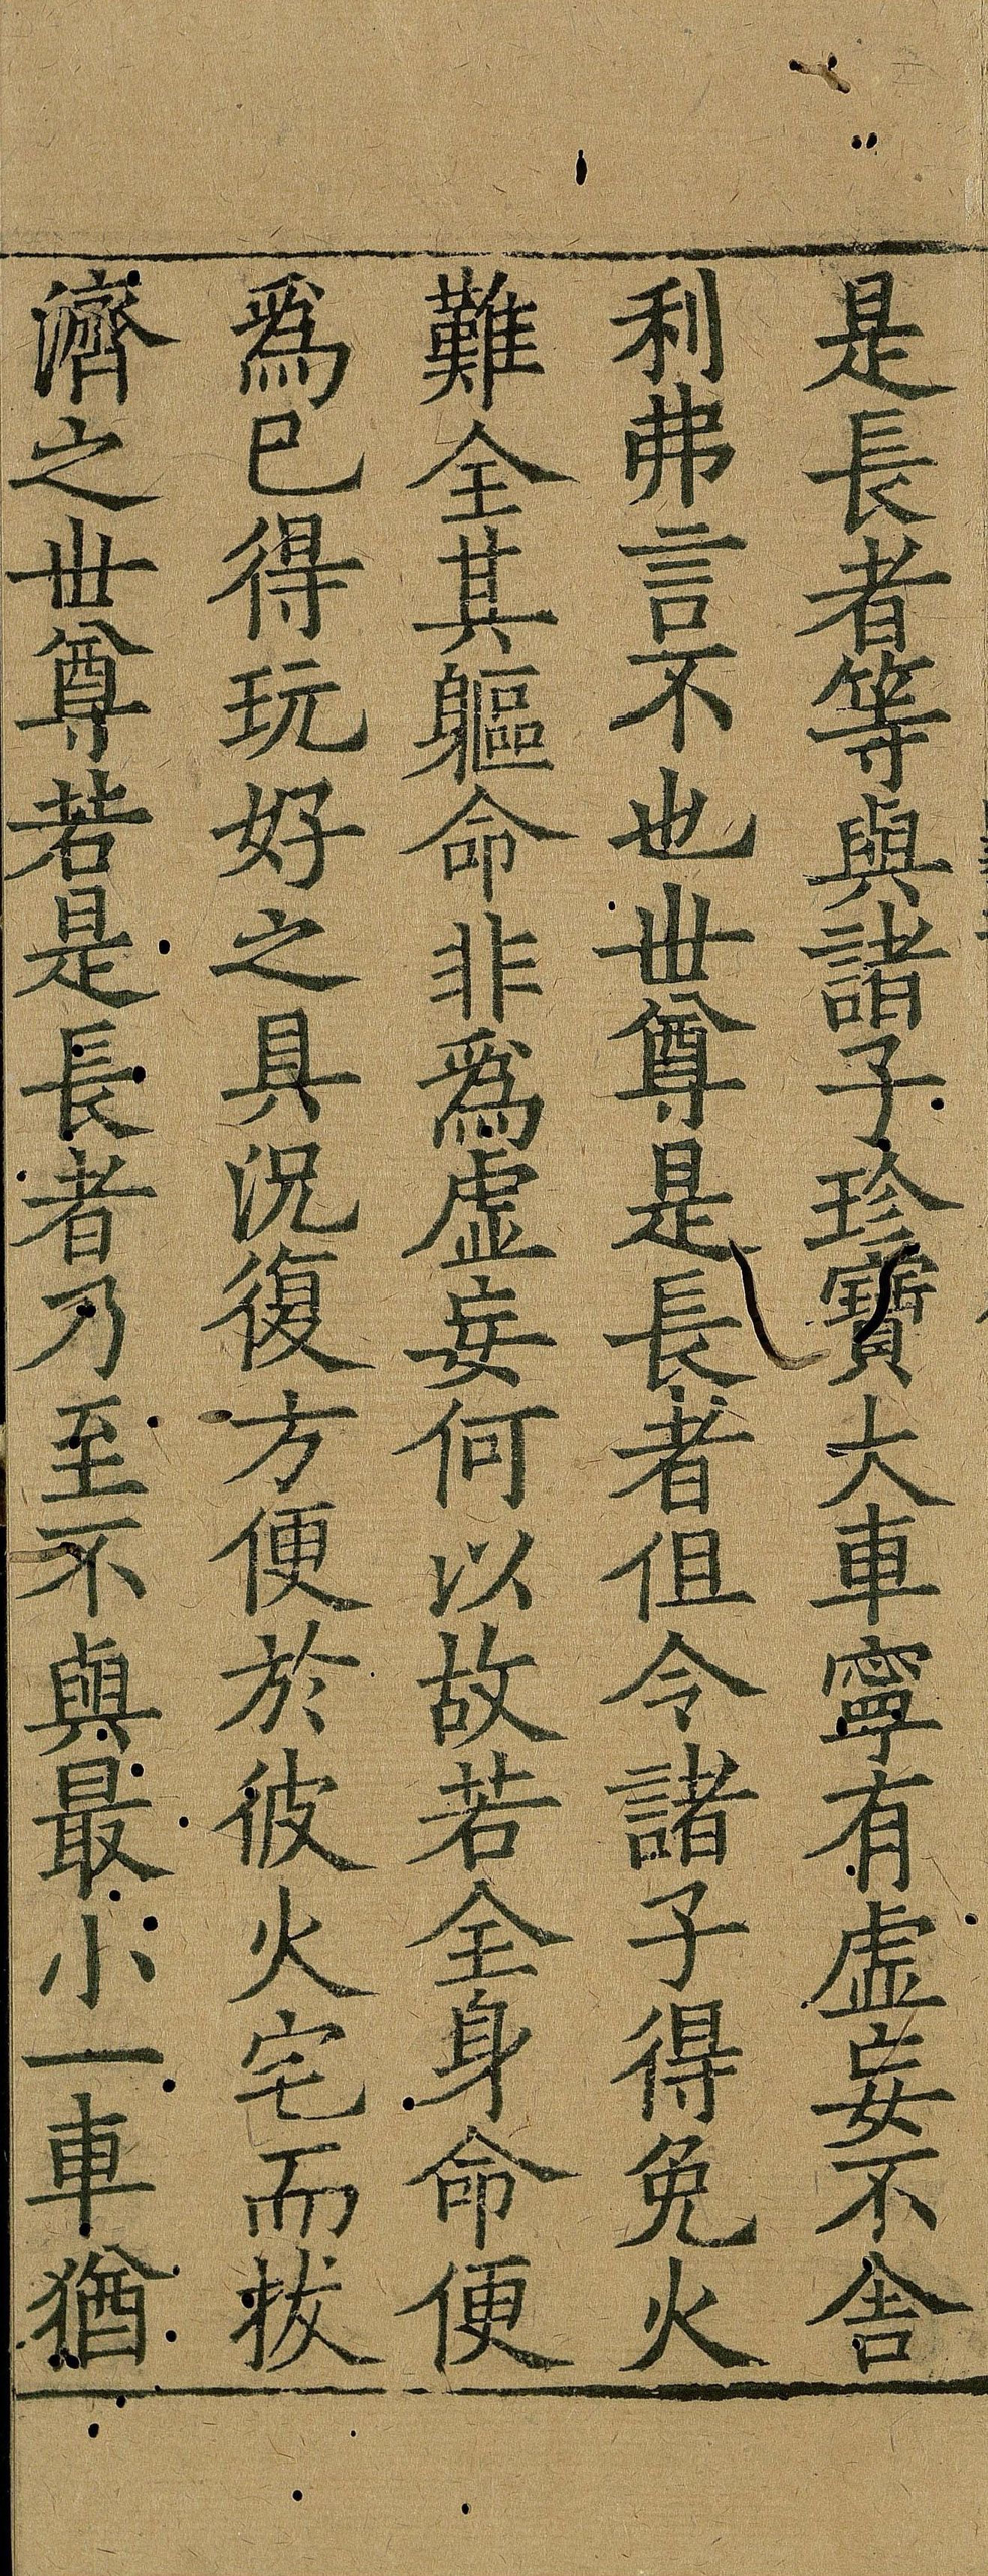 是長者等與諸子珍寶大車寧有虛妄不舎
利弗言不也世尊是長者伹令諸子得免火
難全其軀命非爲虛妄何以故若全身命便
爲已得玩好之具況復方便於彼火宅而拔
濟之世尊若是長者乃至不與最小一車猶